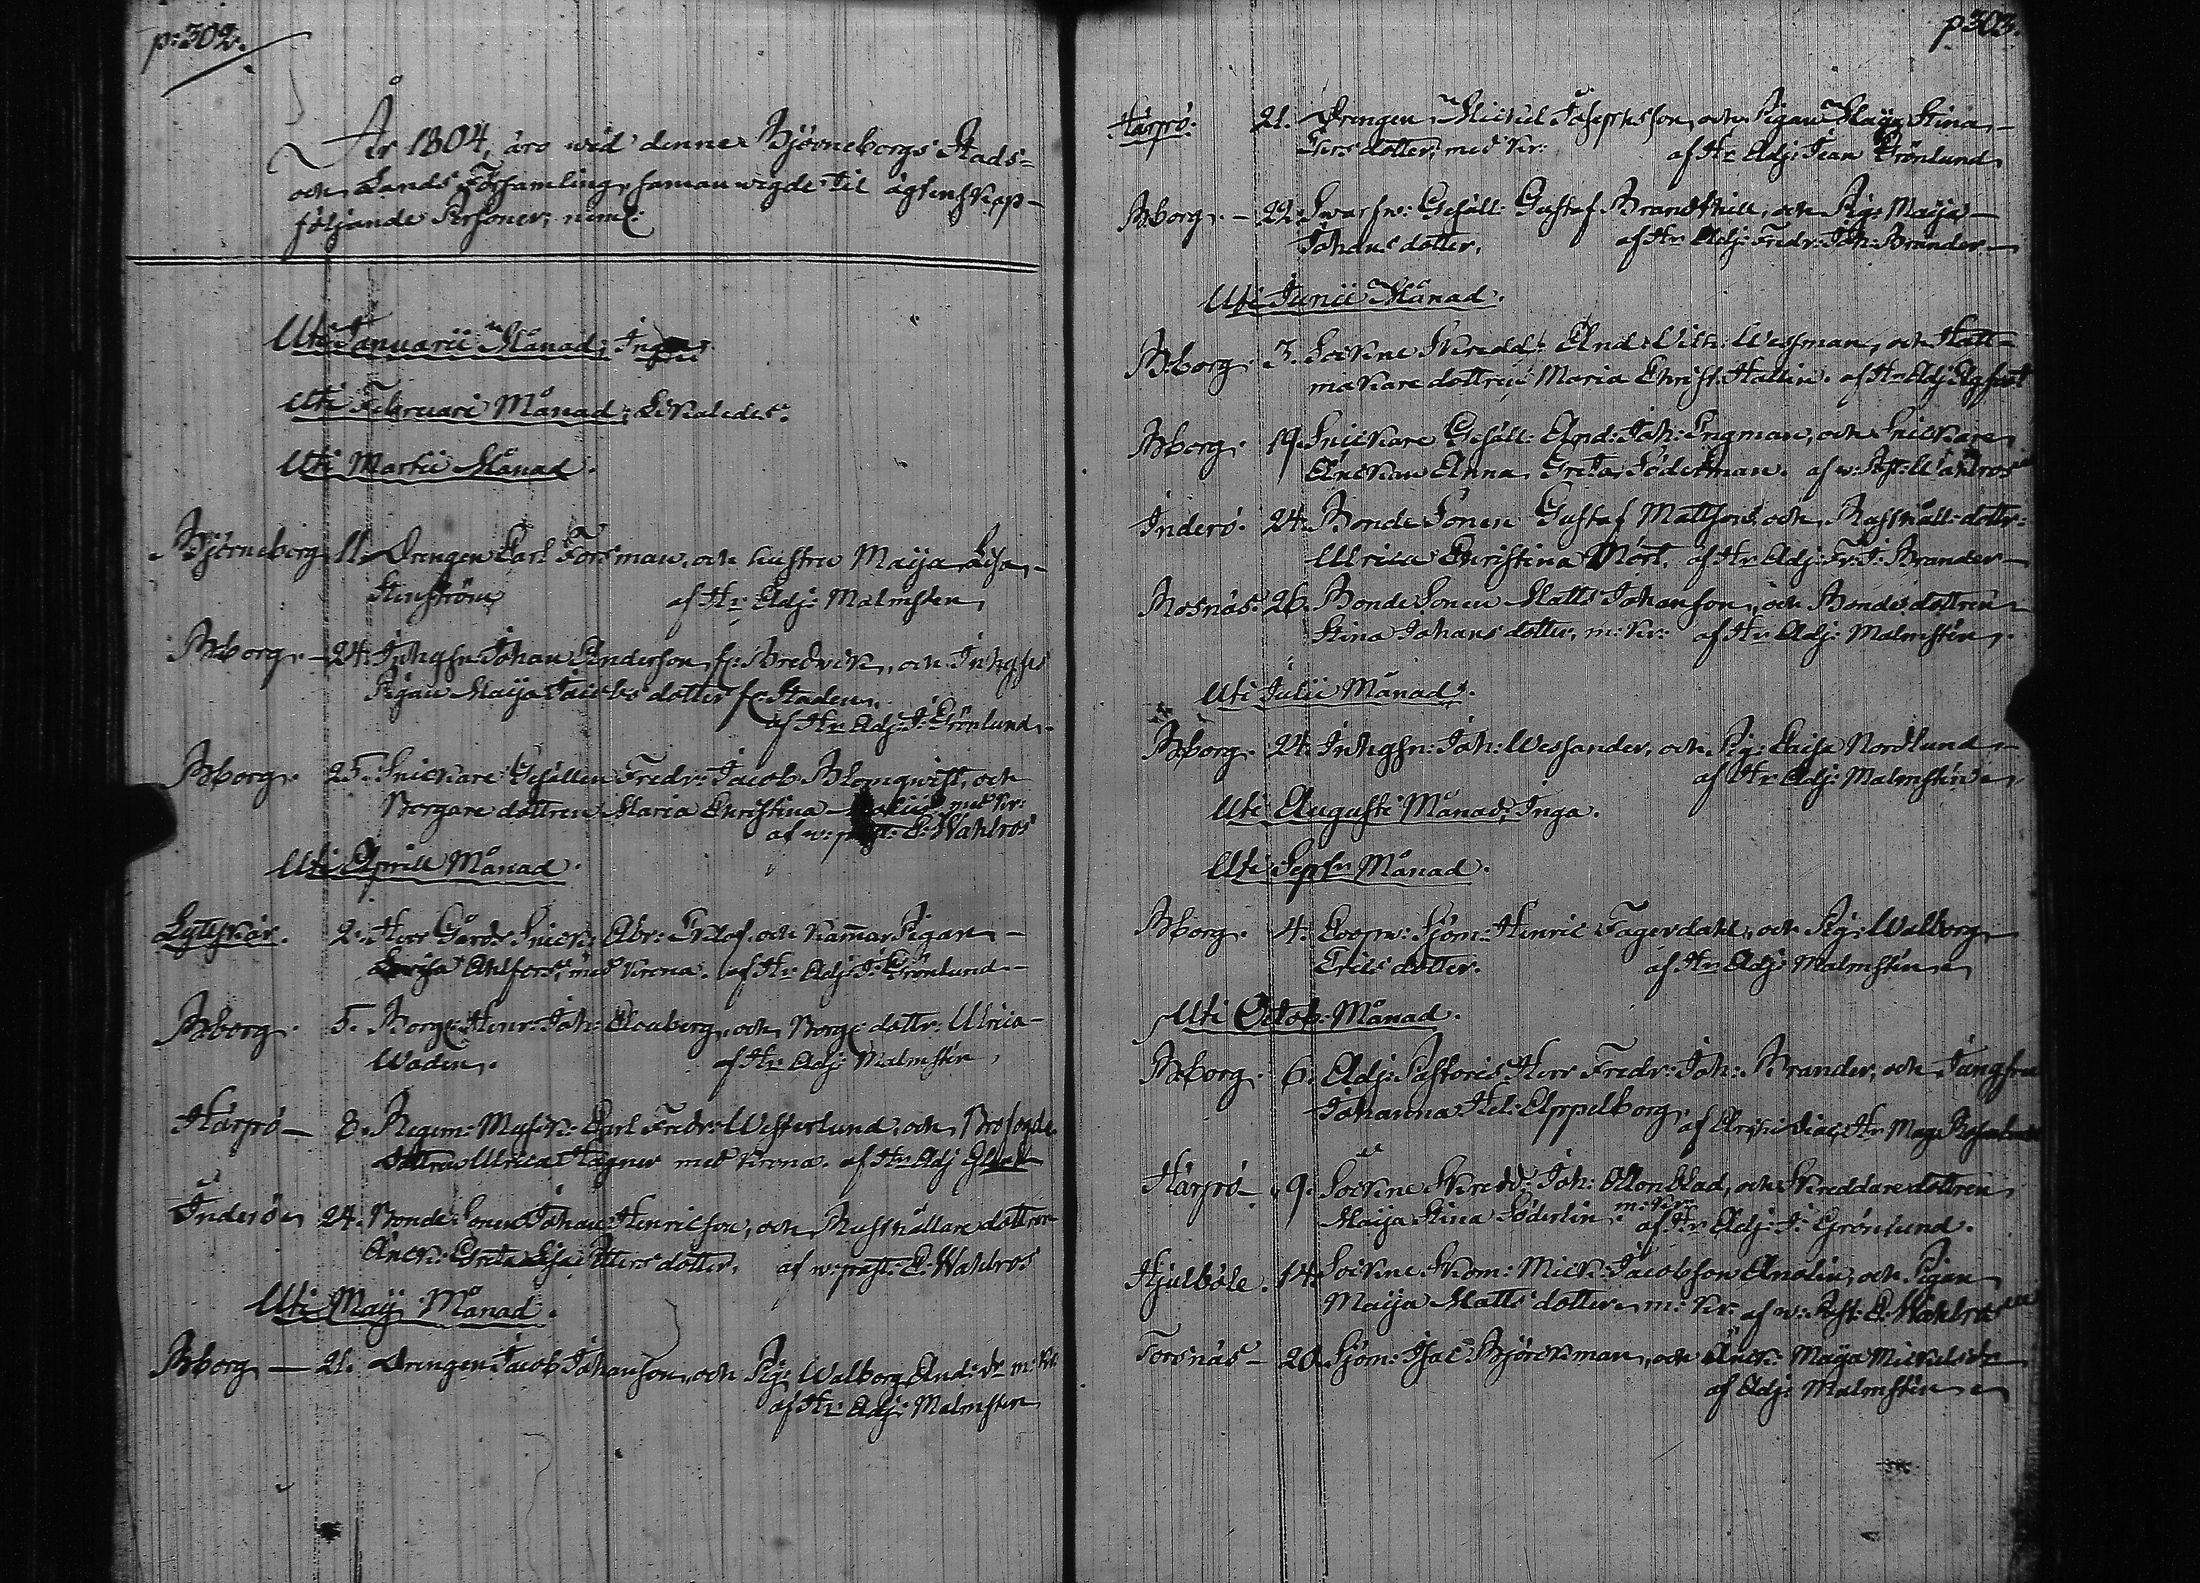 p: 302.
År 1804, äro wid denne Björneborgs Stads-
och Lands Församling, samman wigde til ägtenskap
följande Personer, neml:
Uti Januarii Månad, Inga
Uti Februari Månad, Likaledes.
Uti Martii Månad.
Björneborg 11. Drengen Carl Forsman, och hustru Maija Lisa
Stenström, af Hr Adj: Malmsten,
Bborg. 24. Johan Anderson fr: Bredvik, och
Pigan Maija Jacobs dotter fr Staden,
af Hr Adj: J: Grönlund.
Bborg. 25. Snickare Gesällen Fredr: Jacob Blomqwist, och
Borgare dottren Maria Christina med kr:
af w: past: E: Wahlros
Uti Aprill Månad.
Lyttskär. 2. Herr Gårds Snick: Abr: och Kammar Pigan
Lovisa Ahlfors, med Krona. af Hr Adj: J: Grönlund.
Bborg. 5. Borg: Henr: Joh: och Borg: dottr: Ulrica
Wadén. af Hr Adj: Malmstén,
Härpö 8. Regem: Musik: Carl Fredr: Westerlund, och
dottren Ulrica Hagner med Krona. af Hr Adj
Inderö 24. Bonde Sonen Johan Henricson, och Rusthållare dottren
Änck: Greta Lisa Petters dotter, af w: past: E: Wahlros
Uti Maij Månad.
Bborg 21. Drengen Jacob Johanson, och Pig: Walborg And: dr m: Kr:
af Hr: Adj: Malmsten
p 303.
Härpö. 21. Drengen Mickel Josephsson, och Pigan Maija Stina
dotter, med kr: af Hr Adj: Jean Grönlund,
Bborg. 22. Swarfw: Gesäll: Gustaf Brandthill, och Pig: Maija
Johans dotter, af Hr Adj: Fredr: Joh: Brander.
Uti Junii Månad.
Bborg. 3. Sockne Skredd: And: Wilh: Wessman, och Hatt-
makare dottren Maria Christ: Hallin. af Hr Adj
Bborg. 19. Snickare Gesäll: And: Joh: Ingman, och Snickare
Änckan Anna Greta Söderman. af w: Past: Wahlros
Inderö. 24. Bonde Sonen Gustaf Mattsons, och Rusthåll: dottr:
Ulrica Christina Mört, af Hr Adj: Fr: J: Brander
Rosnäs. 26. Bonde Sonen Matts Johanson, och Bonde dottren
Stina Johans dotter, m: kr: af Hr Adj: Malmstén,
Uti Julii Månad.
Bborg. 24. Joh: Wessander, och Pig: Caisa Nordlund,
af Hr Adj: Malmstén
Uti Augusti Månad, Inga.
Uti Septr Månad.
Bborg. 4. Coopw: Sjöm: Henric Fagerdahl, och Pig: Walborg
Erics dotter. af Hr Adj: Malmstén
Uti Octob: Månad.
Bborg. 6. Adj: Pastoris Herr Fredr: Joh: Brander, och Jungfru
Johanna Hel: Appelborg, af Hr Mag:
Härpö 9. Sockne Skredd: Joh: Allonblad, och Skreddare dottren
Maija Stina Söderlin m: kr: af Hr Adj: J: Grönlund.
Hjulböle. 14. Sockne Skom: Mick: Jacobson Analin, och Pigan
Maija Matts dotter m: kr: af w: Past: E: Wahlros
Torsnäs 20. Sjöm: Isac Björckman, och Änck: Maija Mickels dr
af Adj: Malmstén